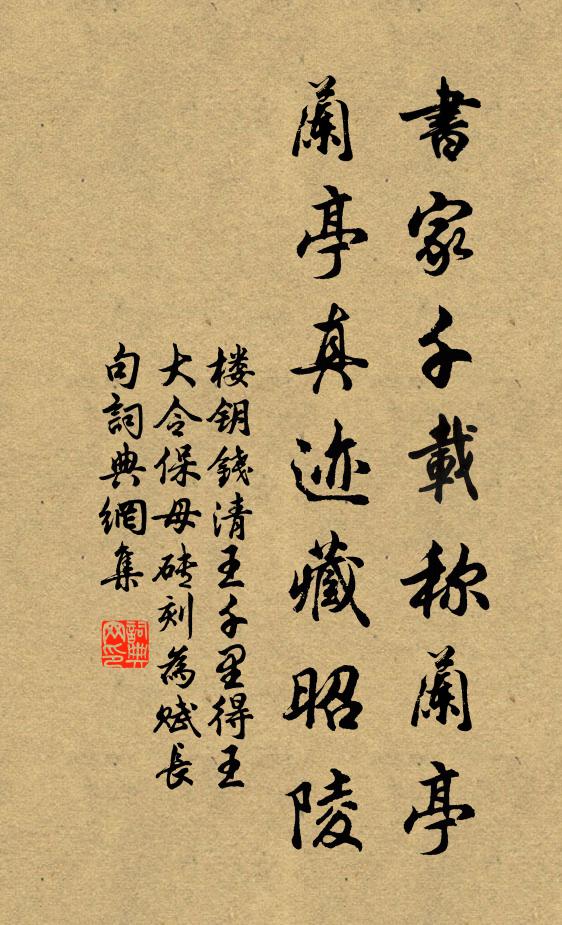 書家千載称蘭亭
蘭亭真迹藏昭陵
楼钥錢清王千里得王
大令保母磚刻為賦長
句詞典網集
詞典網印